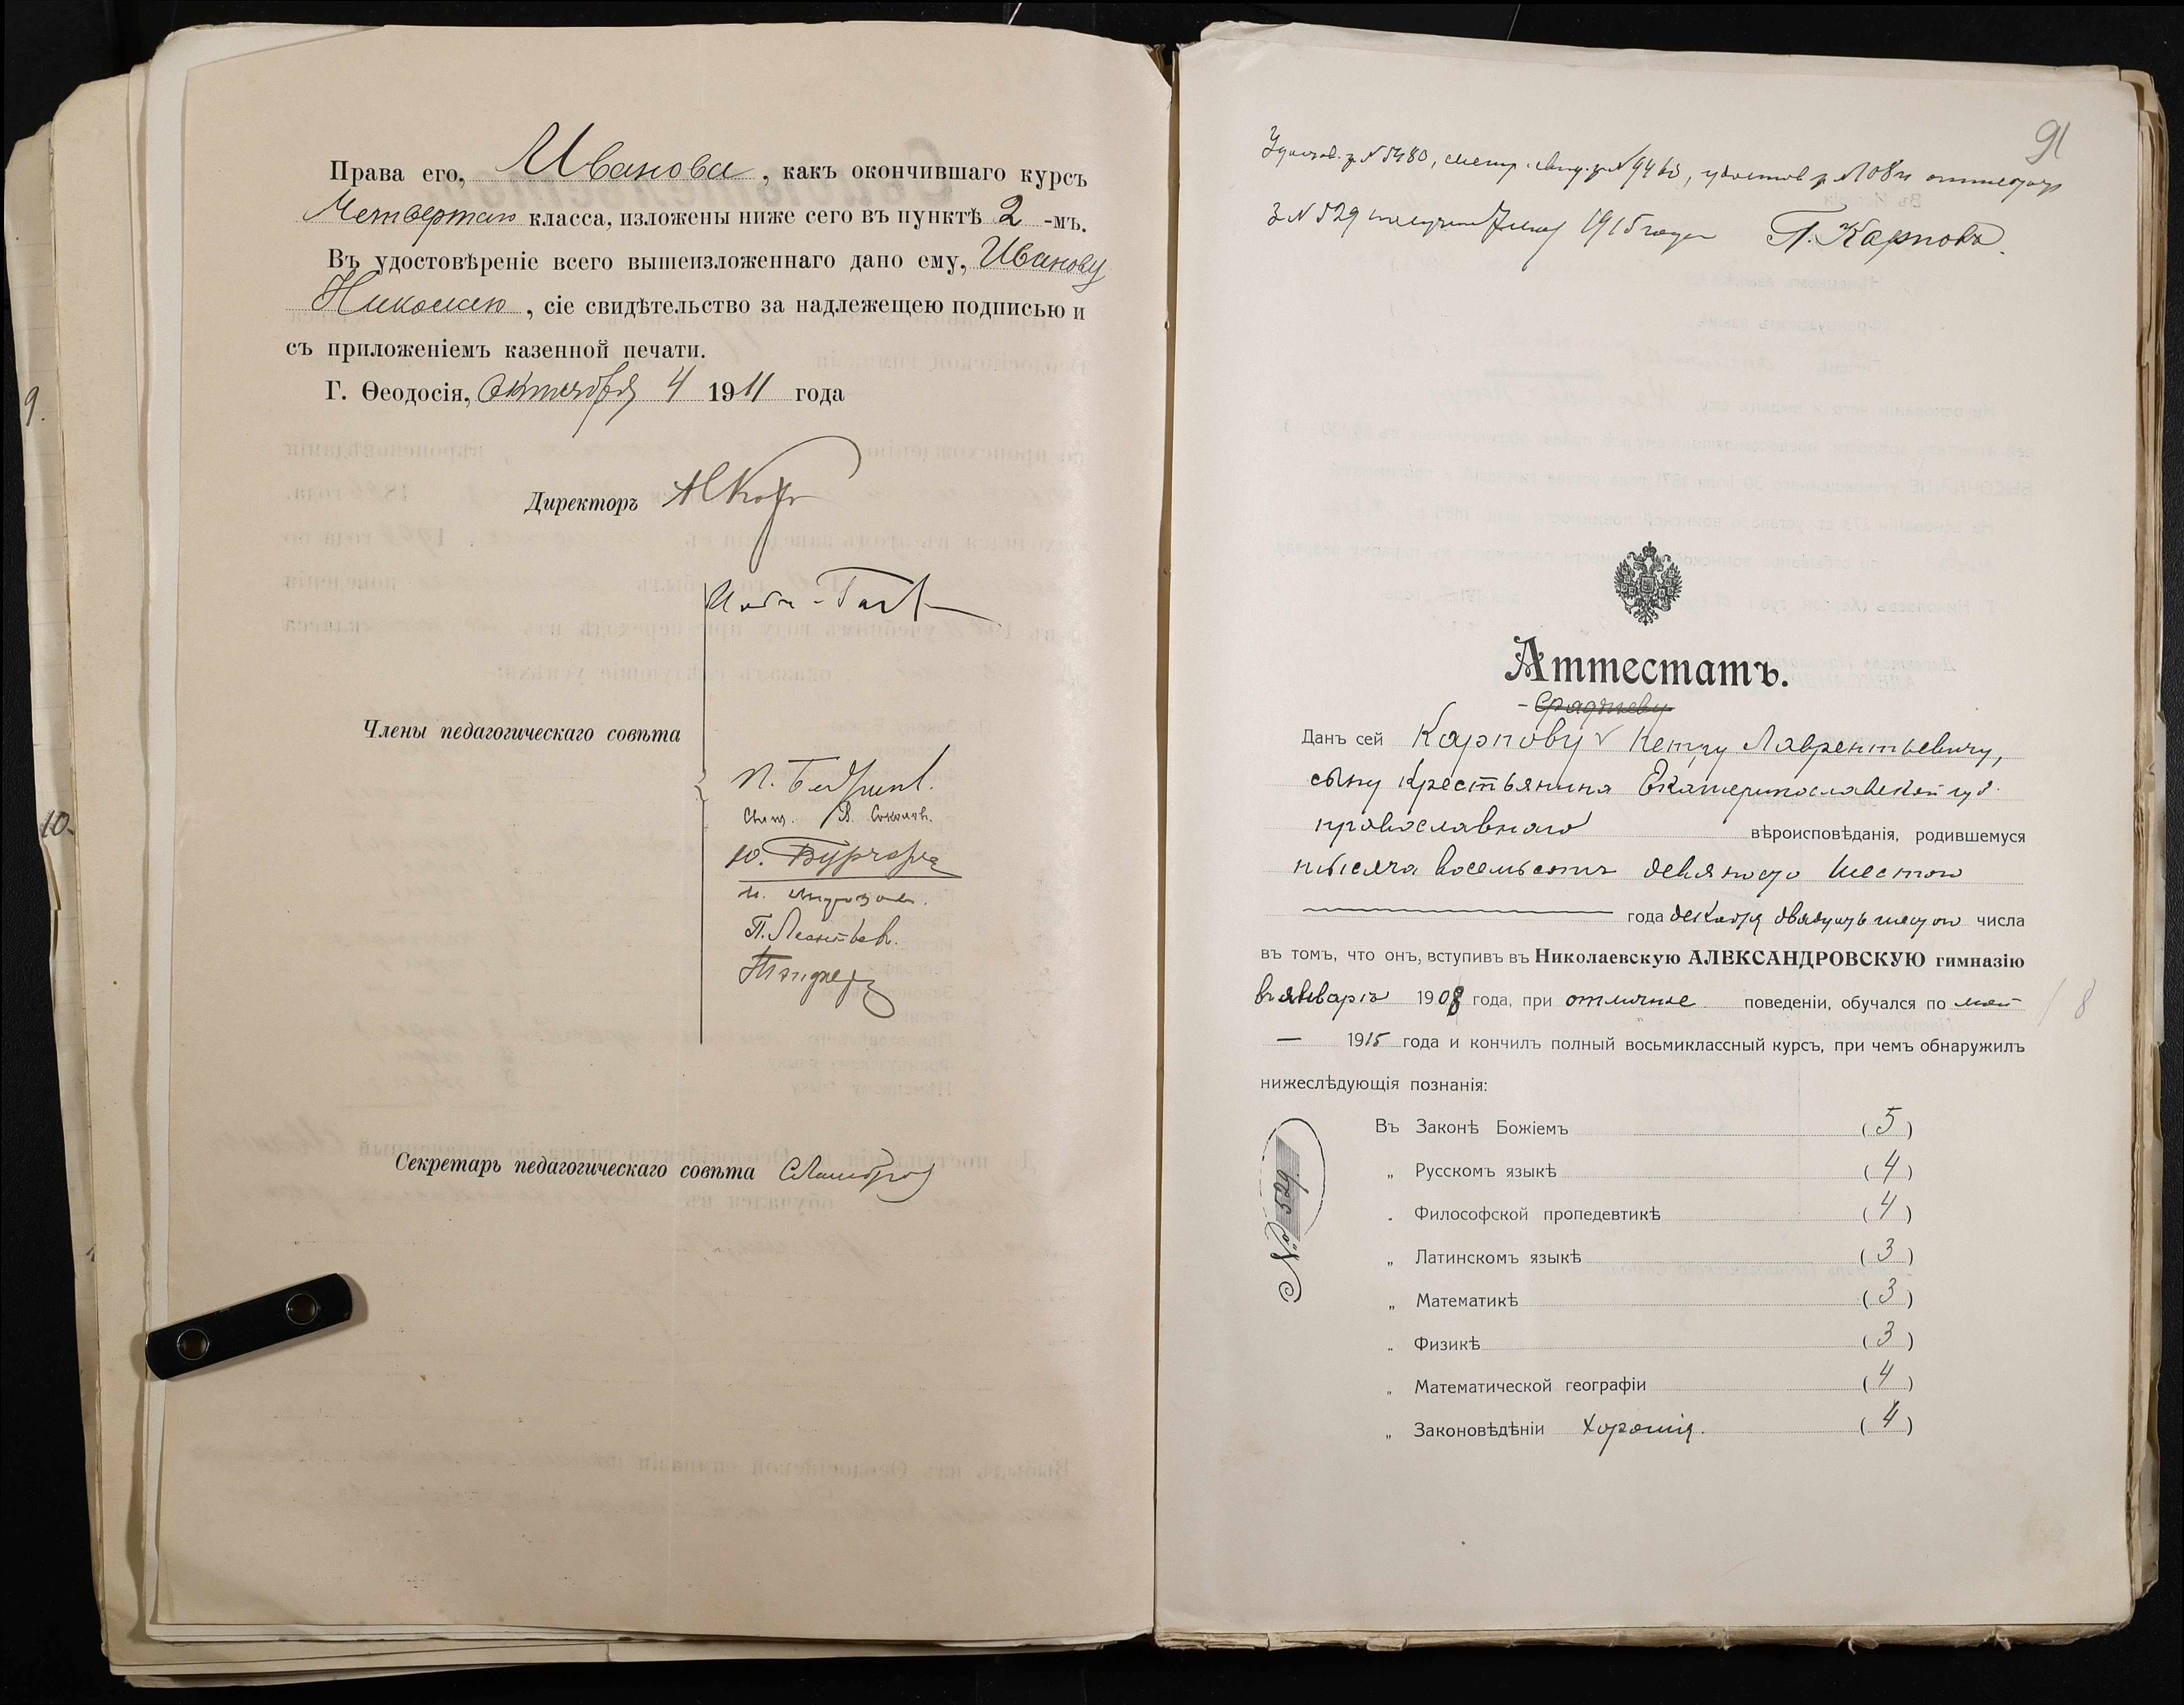 9.
10.
Права его, Иванова, какъ окончившаго курсъ
Четвертаго класса, изложены ниже сего въ пунктѣ 2 -мъ.
Въ удостовѣреніе всего вышеизложеннаго дано ему, Иванову
Николаю, сіе свидѣтельство за надлежещею подписью и
съ приложеніемъ казенной печати.
Г. Ѳеодосія, Октября 4 1911 года
Директоръ
Члены педагогическаго совѣта
Свящ. Соколов.
Ю. Бургардъ
П. Леонтьев.
Секретарь педагогическаго совѣта
91
N 5480,
з N 529 1915 года П. Карповъ.
Аттестатъ.
Данъ сей Карпову Петру Лаврентьевичу,
сыну крестьянина Екатеринославской губ.
православнаго вѣроисповѣданія, родившемуся
тысяча восемьсотъ девяносто шестого
года декабря двадцать шестого числа
въ томъ, что онъ, вступивъ въ Николаевскую АЛЕКСАНДРОВСКУЮ гимназію
въ январѣ 1908 года, при отличное поведеніи, обучался по май
— 1915 года и кончилъ полный восьмиклассный курсъ, при чемъ обнаружилъ
нижеслѣдующія познанія:
Въ Законѣ Божіемъ (5)
„ Русскомъ языкѣ (4)
„ Философской пропедевтикѣ (4)
„ Латинскомъ языкѣ (3)
„ Математикѣ (3)
„ Физикѣ (3)
„ Математической географіи (4)
„ Законовѣдѣніи Хорошія. (4)
№ 529
8